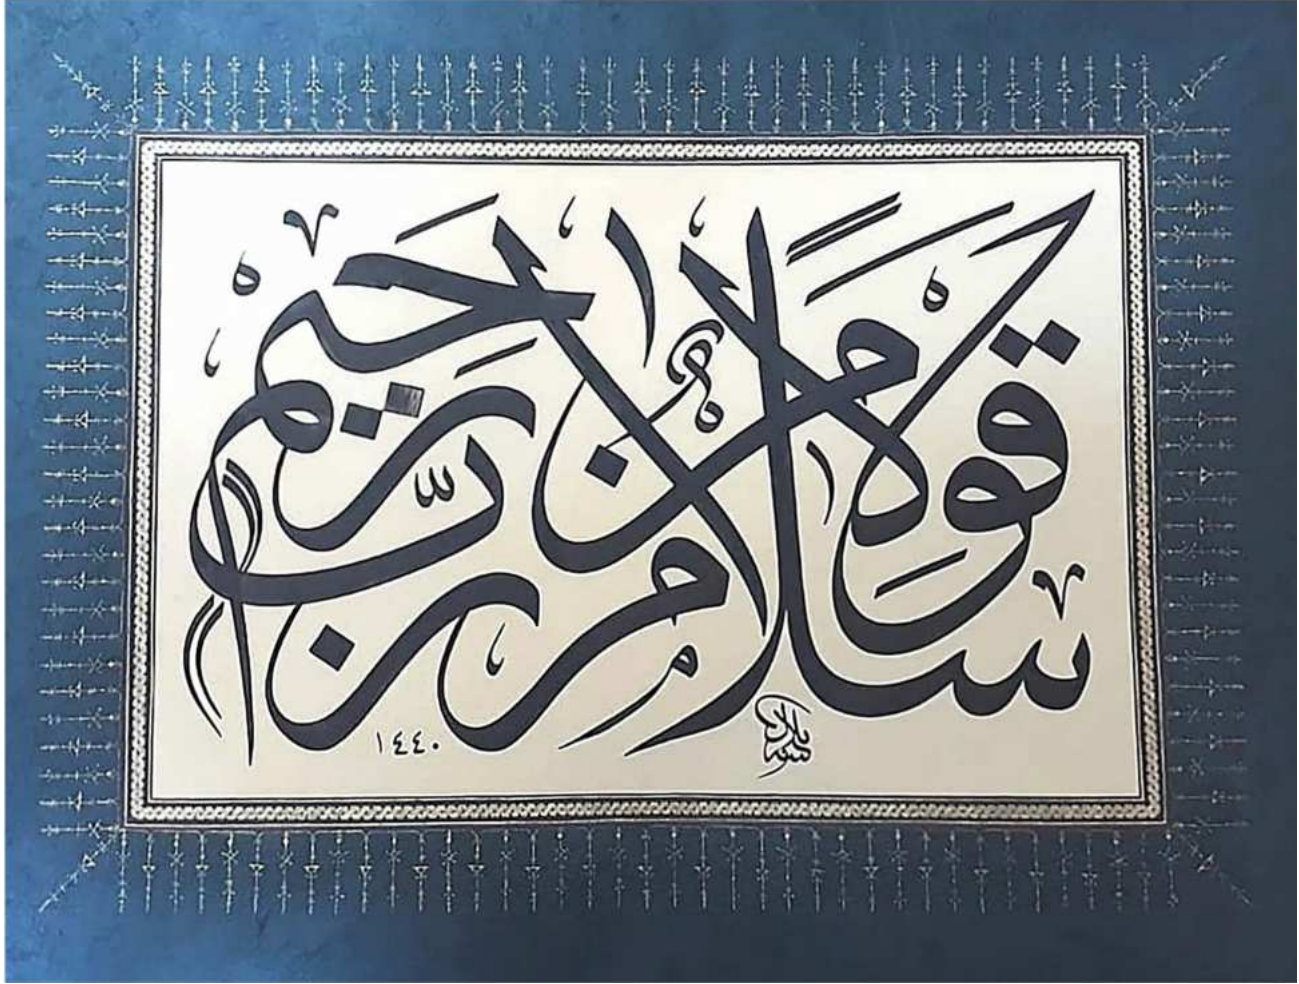 سلام قولا من رب رحيم
١٤٤٠